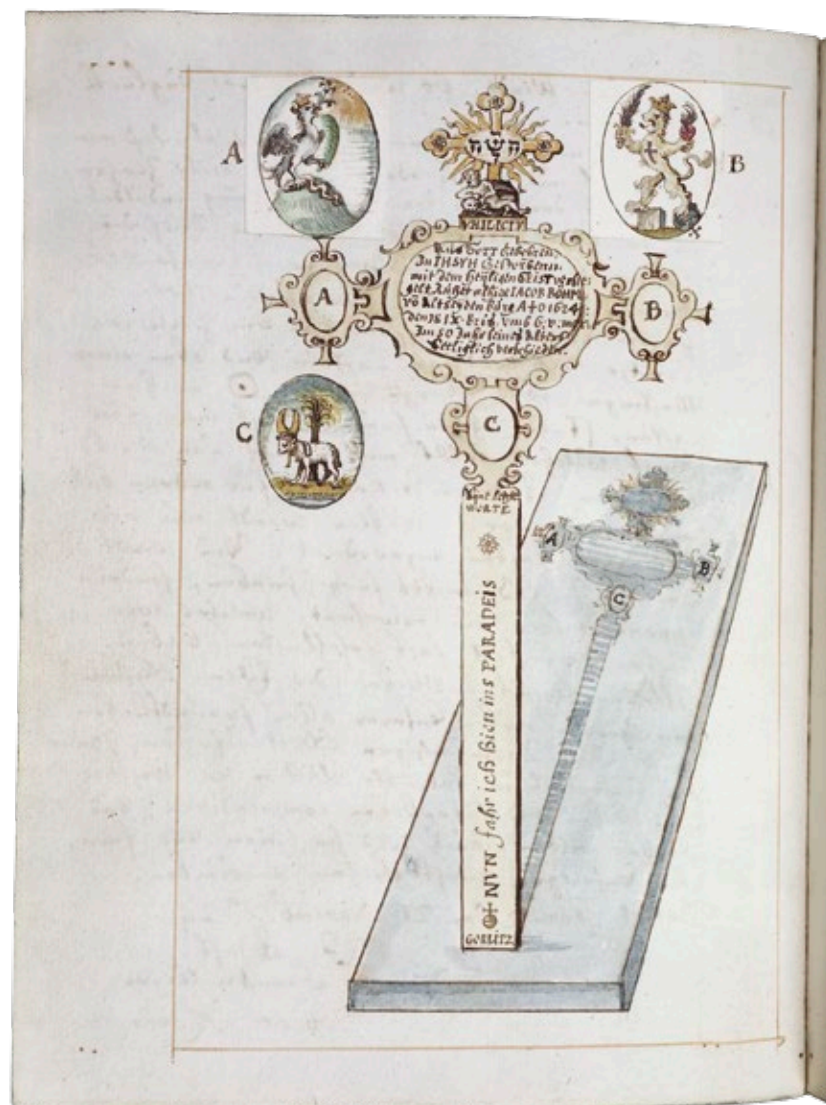 A
השה
B
VHILICTV
Aus GOTT Gebohren.
In IHSVH Gestorbenn.
mit dem heyligen GEIST versie-
gelt Ruhet allhie IACOB BÖHME
võ Altseydenbürg A†O 1624.
den 18 IX-bris. umb 6. v.
Im 50 Jahr seines Alters
Seeliglich verschieden.
A
B
C
C
letzte
WORTE
NVN fahr ich hien ins PARADEIS
GORLITZ
A
B
C